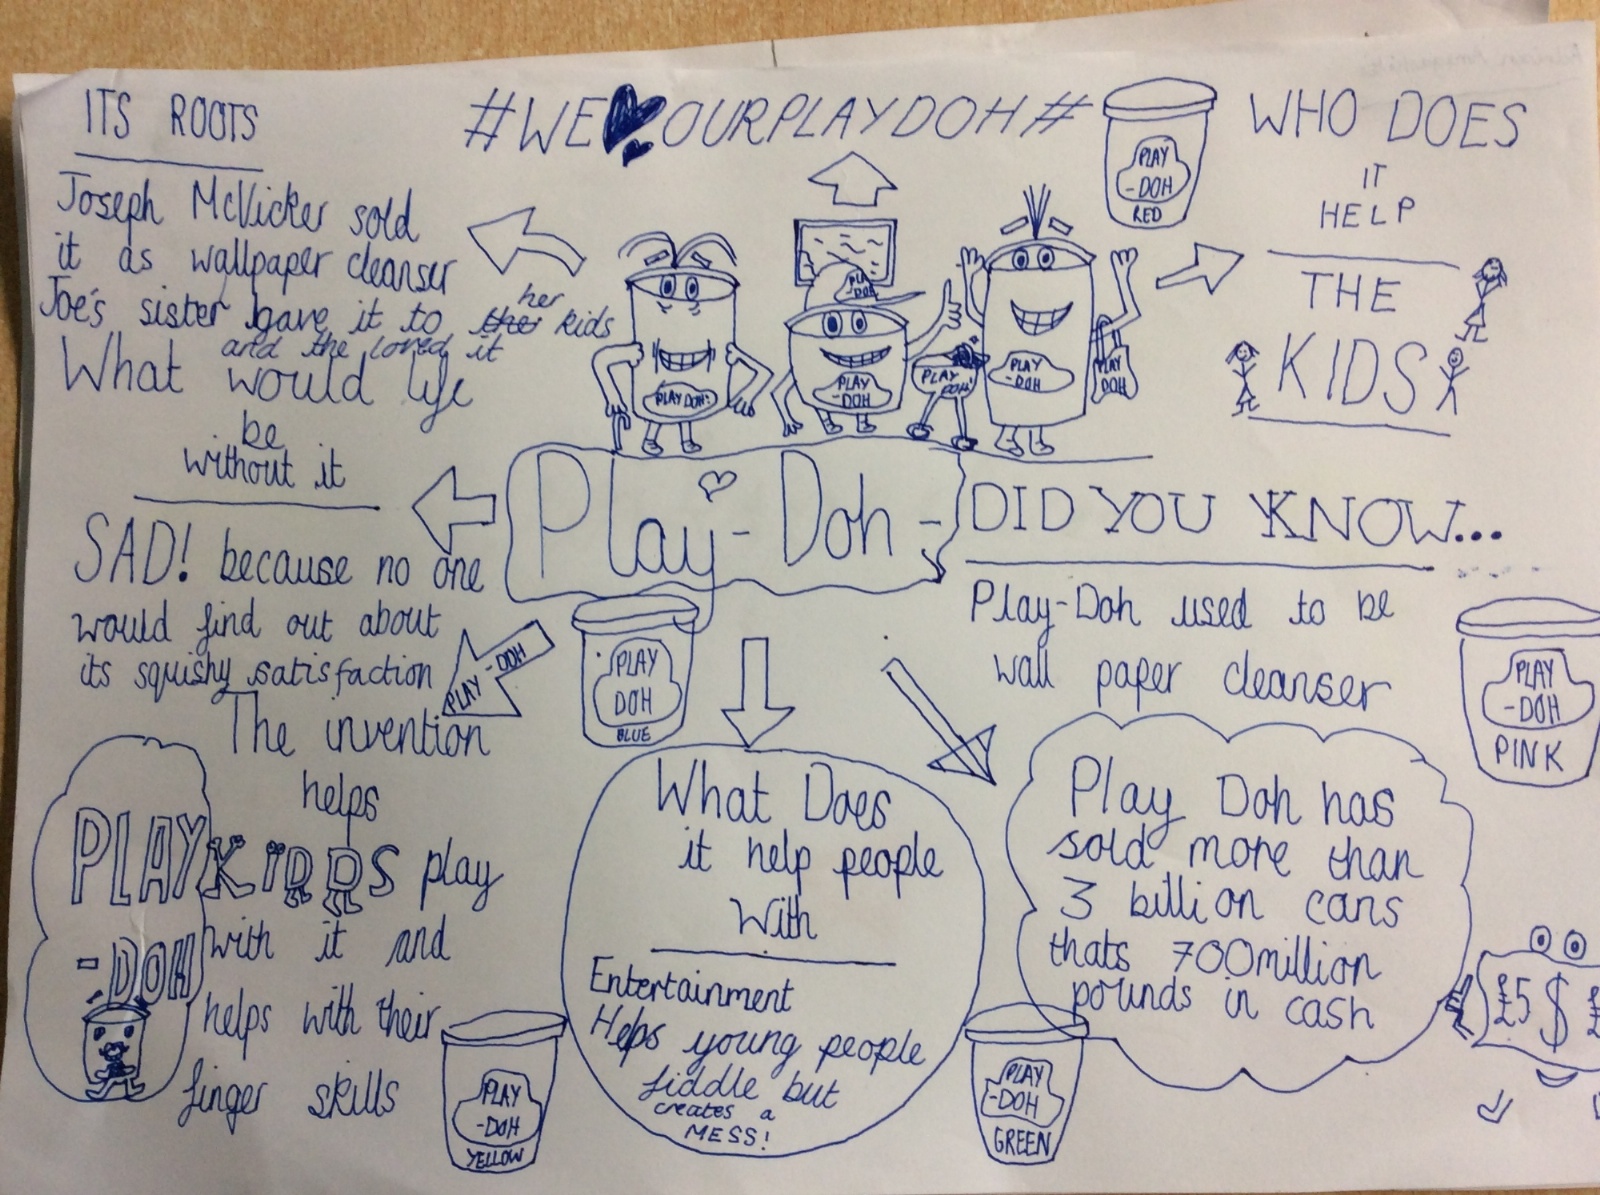 ITS ROOTS
Joseph McVicker sold
it as wallpaper cleanser
Joe's sister gave it to the her kids
and the loved it
What would life
be
without it
SAD! because no one
would find out about
its squishy satisfaction
PLAY-DOH
The invention
helps
KIDDS play
with it and
helps with their
finger skills
PLAY
-DOH
#WE OURPLAYDOH#
PLAY DOH
PLAY
-DOH
PLAY
-DOH
PLAY
DOH
PLAY
-DOH
PLAY
DOH
Play-Doh-
PLAY
DOH
BLUE
What Does
it help people
With
Entertainment
Helps young people
fiddle but
creates a
MESS!
PLAY
-DOH
YELLOW
PLAY
-DOH
GREEN
PLAY
-DOH
RED
WHO DOES
IT
HELP
THE
KIDS
DID YOU KNOW...
Play-Doh used to be
wall paper cleanser
PLAY
-DOH
PINK
Play Doh has
sold more than
3 billion cans
thats 700million
pounds in cash
£5 $ £